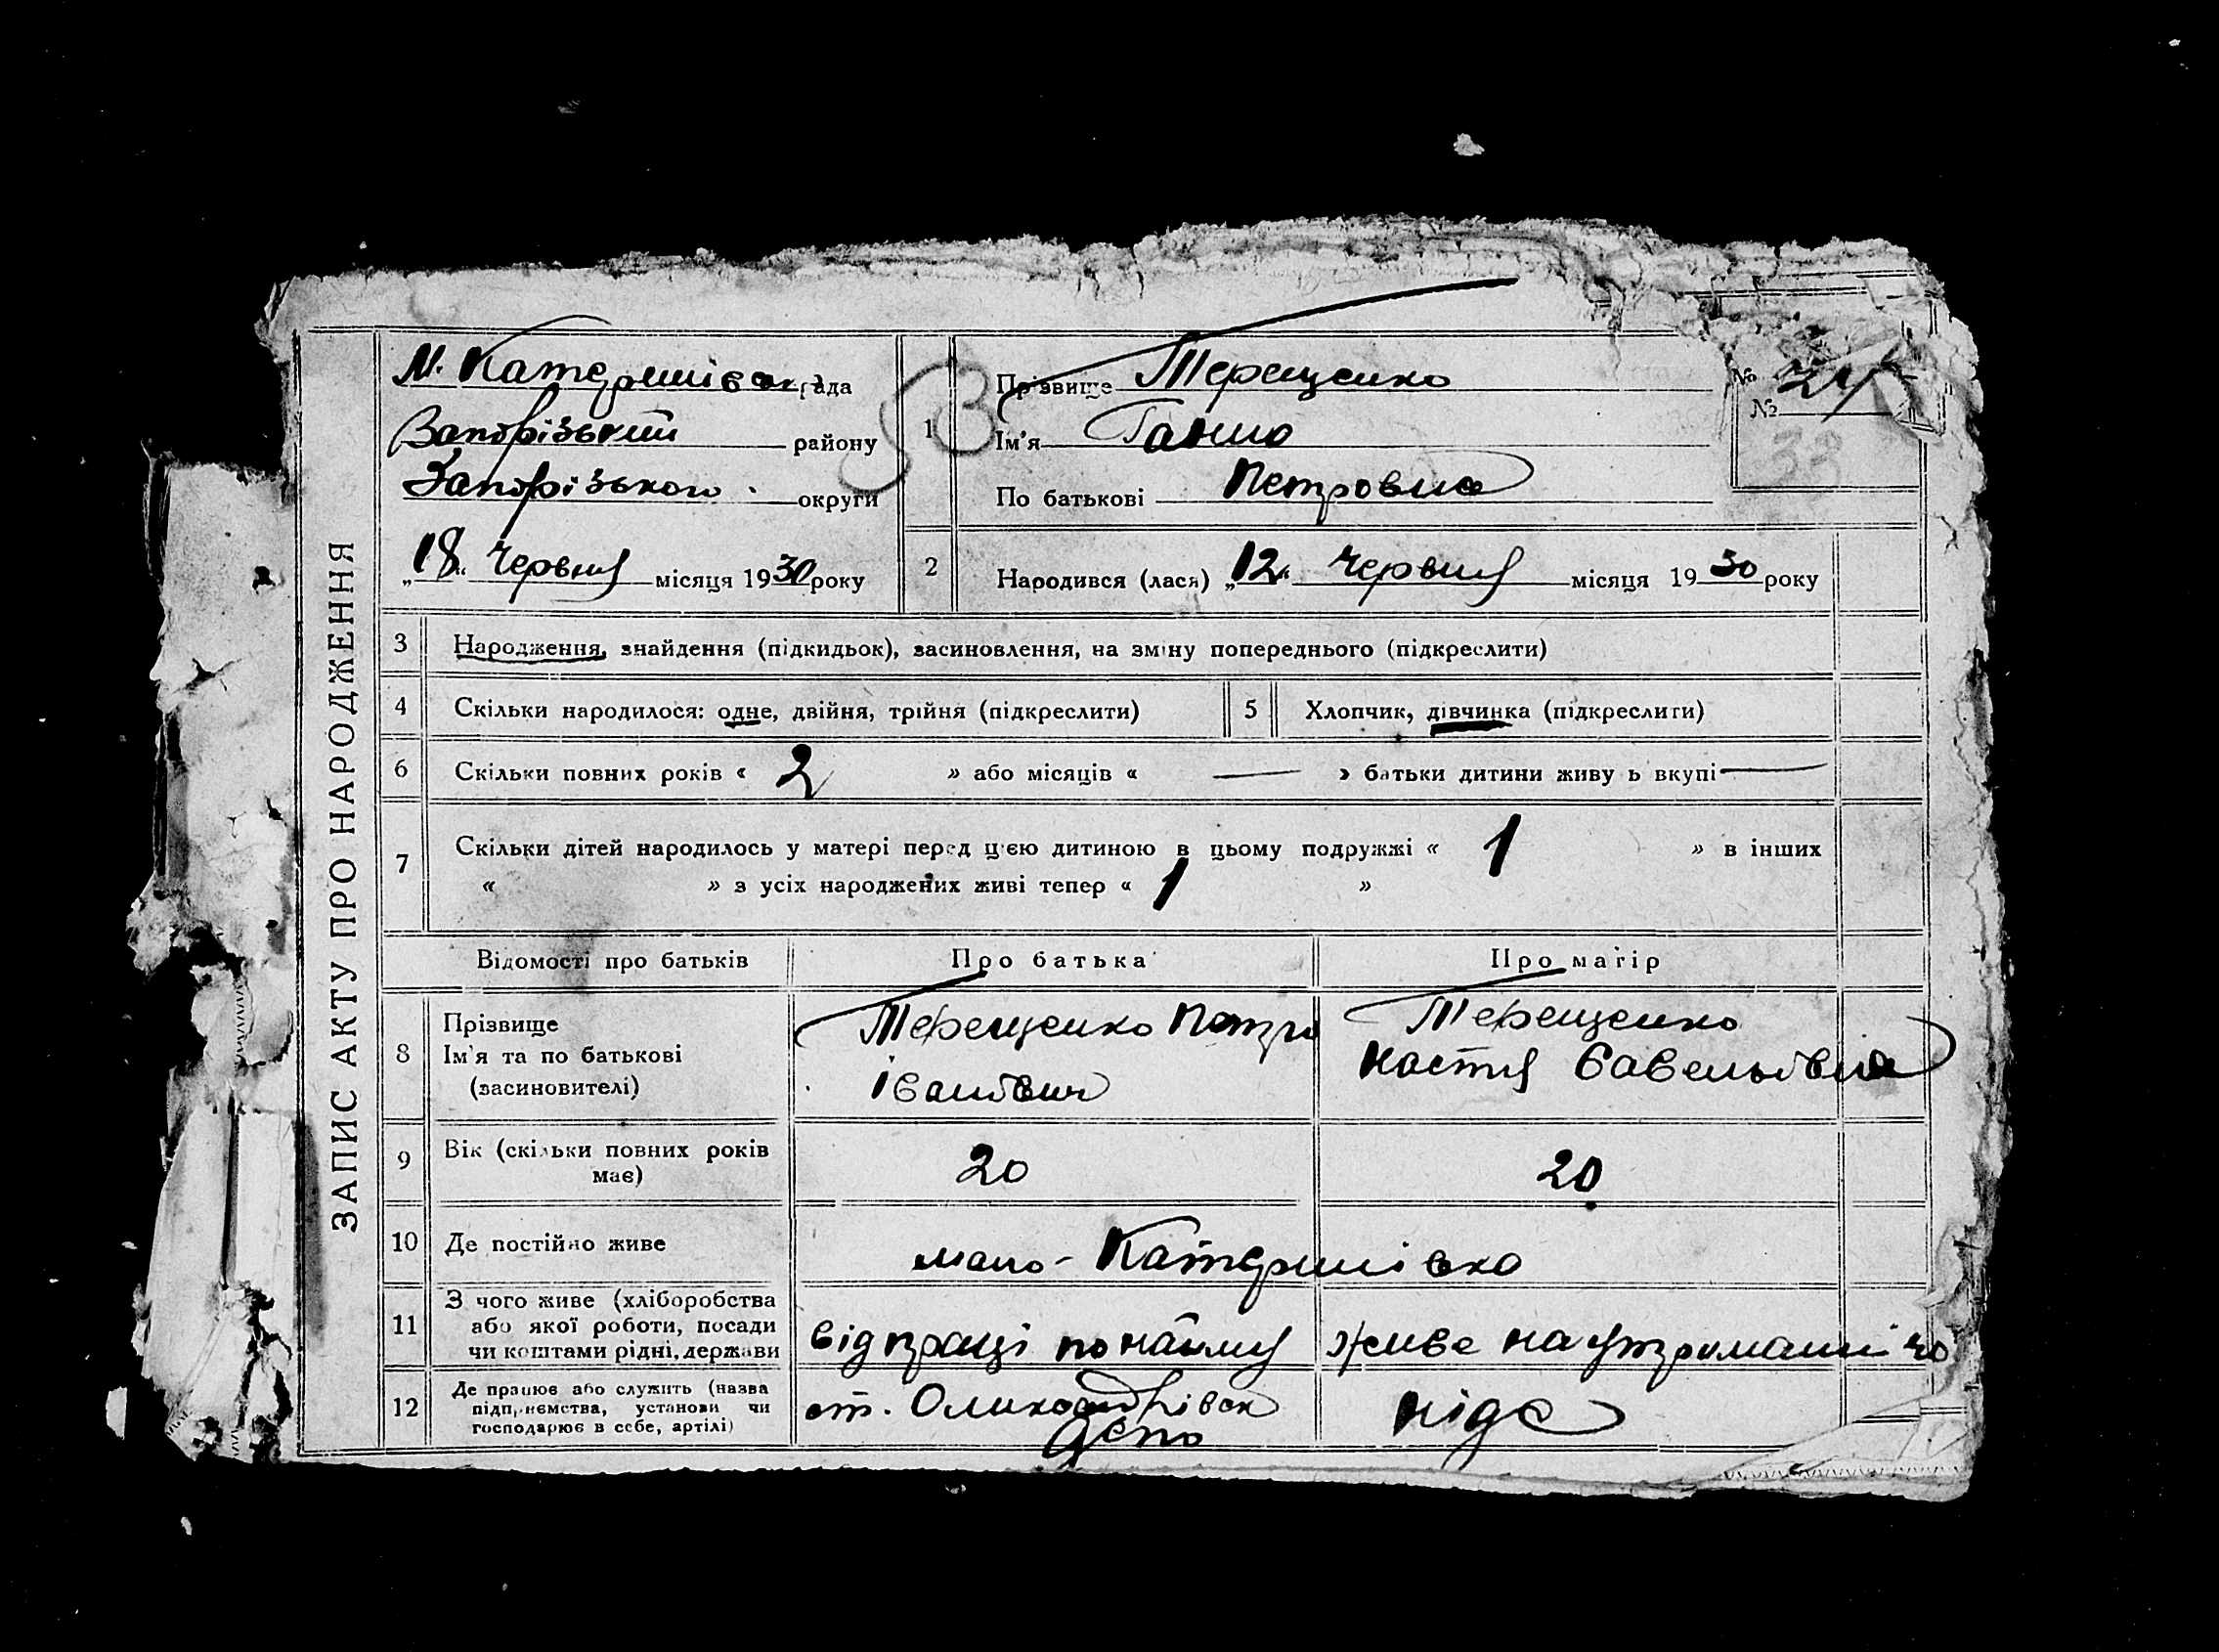 ЗАПИС АКТУ ПРО НАРОДЖЕННЯ
М. Катеринівск рада
Запорізький району
Запорізького округи
„18“ Червня місяця 1930 року
53
1 Прізвище Терещенко
Ім'я Ганна
По батькові Петровна
№ 24
№
33
2 Народився (лася) „12“ Червня місяця 1930 року
3 Народження, знайдення (підкидьок), засиновлення, на зміну попереднього (підкреслити)
4 Скільки народилося: одне, двійня, трійня (підкреслити) 5 Хлопчик, дівчинка (підкреслити)
6 Скільки повних років « 2 » або місяців « — » батьки дитини живу ь вкупі —
7 Скільки дітей народилось у матері перед цією дитиною в цьому подружжі « 1 » в інших
« » з усіх народжених живі тепер « 1 »
Відомості про батьків Про батька Про матір
8 Прізвище
Ім'я та по батькові
(засиновителі)
Терещенко Петро
Іванович
Терещенко
Настя Савельовна
9 Вік (скільки повних років
має)
20 20
10 Де постійно живе
мало-Катеринівка
11 З чого живе (хліборобства
або якої роботи, посади
чи коштами рідні, держави
від праці по найму живе на утриманні чо
12 Де працює або служить (назва
підприємства, установи чи
господарює в себе, артілі)
ст. Олександрівск
депо
ніде